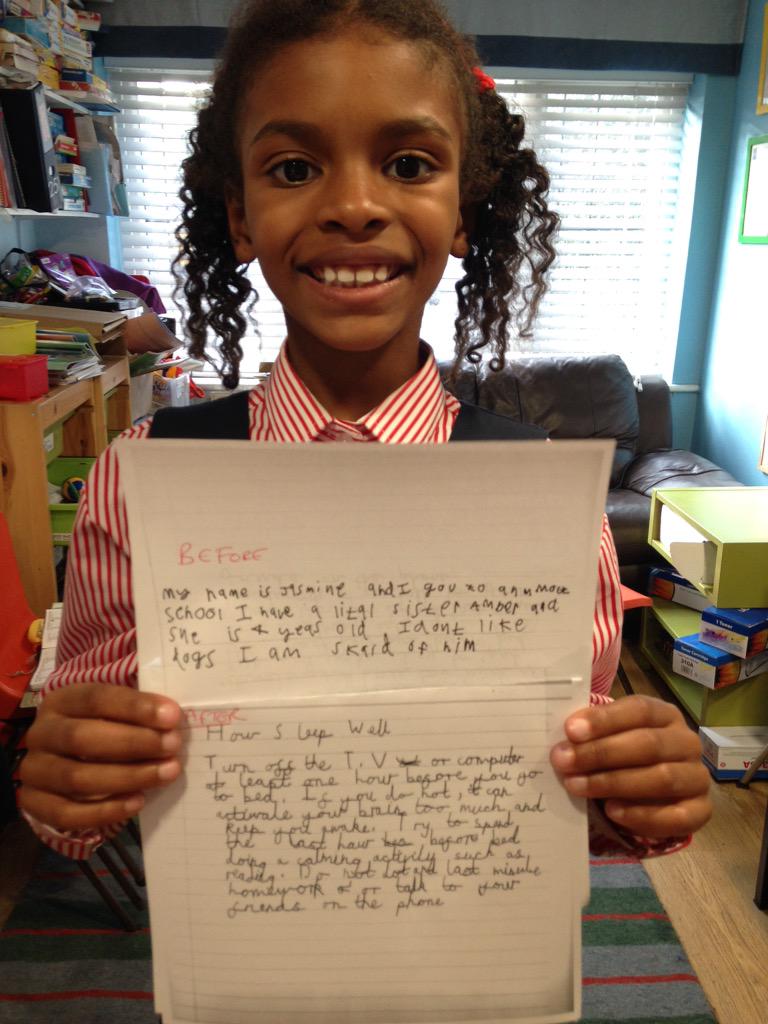 BEFORE
my name is Jasmine and I gou to an mmore
school I have a lital sister Amber and
she is 4 yeas old. I dont like
dogs I am skard of him
AFTER
How Sleep Well
Turn off the T.V or computer
at least one hour before you go
to bed. If you do not, it can
activate your brain too much and
keep you awake. Try to spend
the last hour before bed
doing a calming activity such as
reading. Do not do last minute
homework or talk to your
friends on the phone
1 Toner
Toner Cartridge
310A